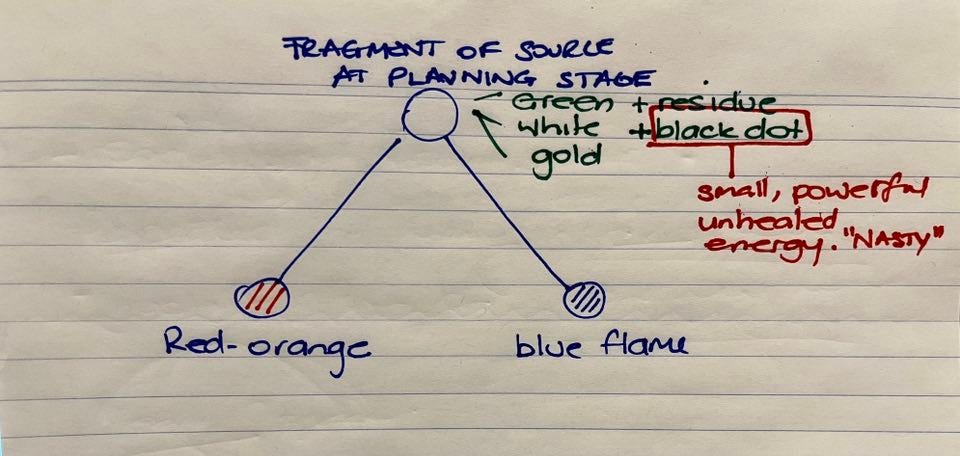 FRAGMENT OF SOURCE
AT PLANNING STAGE
Green + residue
white + black dot
gold
small, powerful
unhealed
energy. "NASTY"
Red-orange
blue flame